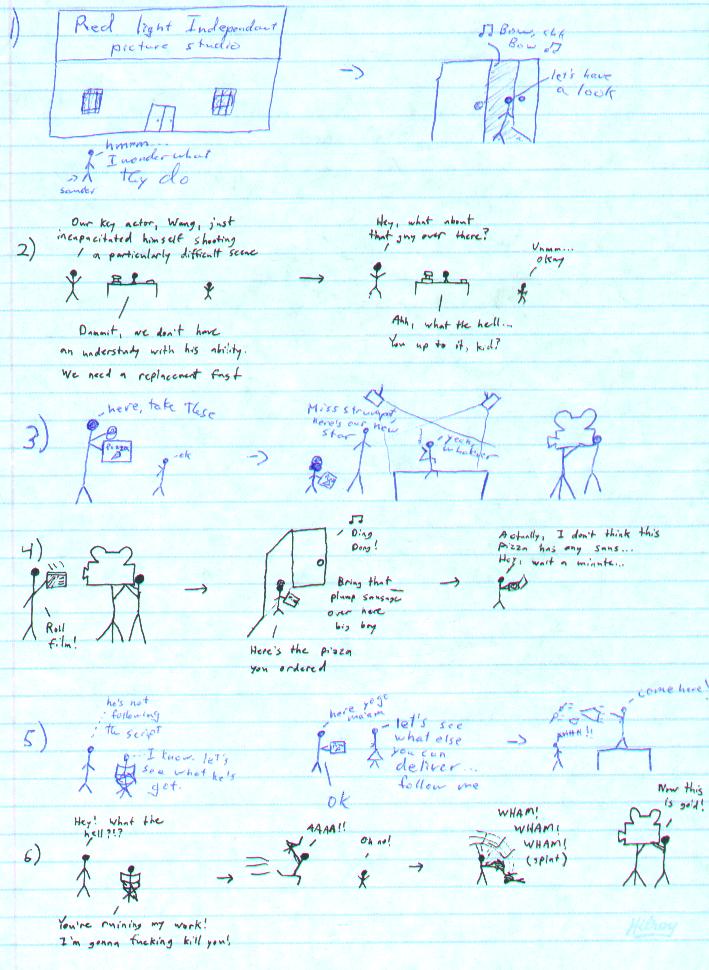 1)
Red light Independant
picture studio
♫ Bow, chk
Bow ♫
let's have
a look
hmmm...
I wonder what
they do
2)
Our key actor, Wang, just
incapacitated himself shooting
a particularly difficult scene
Dammit, we don't have
an understudy with his ability.
We need a replacement fast
Hey, what about
that guy over there?
Ummm...
okay
Ahh, what the hell...
You up to it, kid?
3)
here, take these
pizza
ok
Miss Strumpet,
here's our new
star
yeah,
whatever
4)
Roll
film!
♫
Ding
Dong!
Bring that
plump sausage
over here
big boy
Here's the pizza
you ordered
Actually, I don't think this
pizza has any saus...
Hey, wait a minute...
5)
he's not
following
the script
I know. let's
see what he's
got.
here you go
ma'am
ok
let's see
what else
you can
deliver...
follow me
AHHH!!
come here!
6)
Hey! what the
hell?!?
You're ruining my work!
I'm gonna fucking kill you!
AAAA!!
Oh no!
WHAM!
WHAM!
WHAM!
(splat)
Now this
is gold!
Hilroy